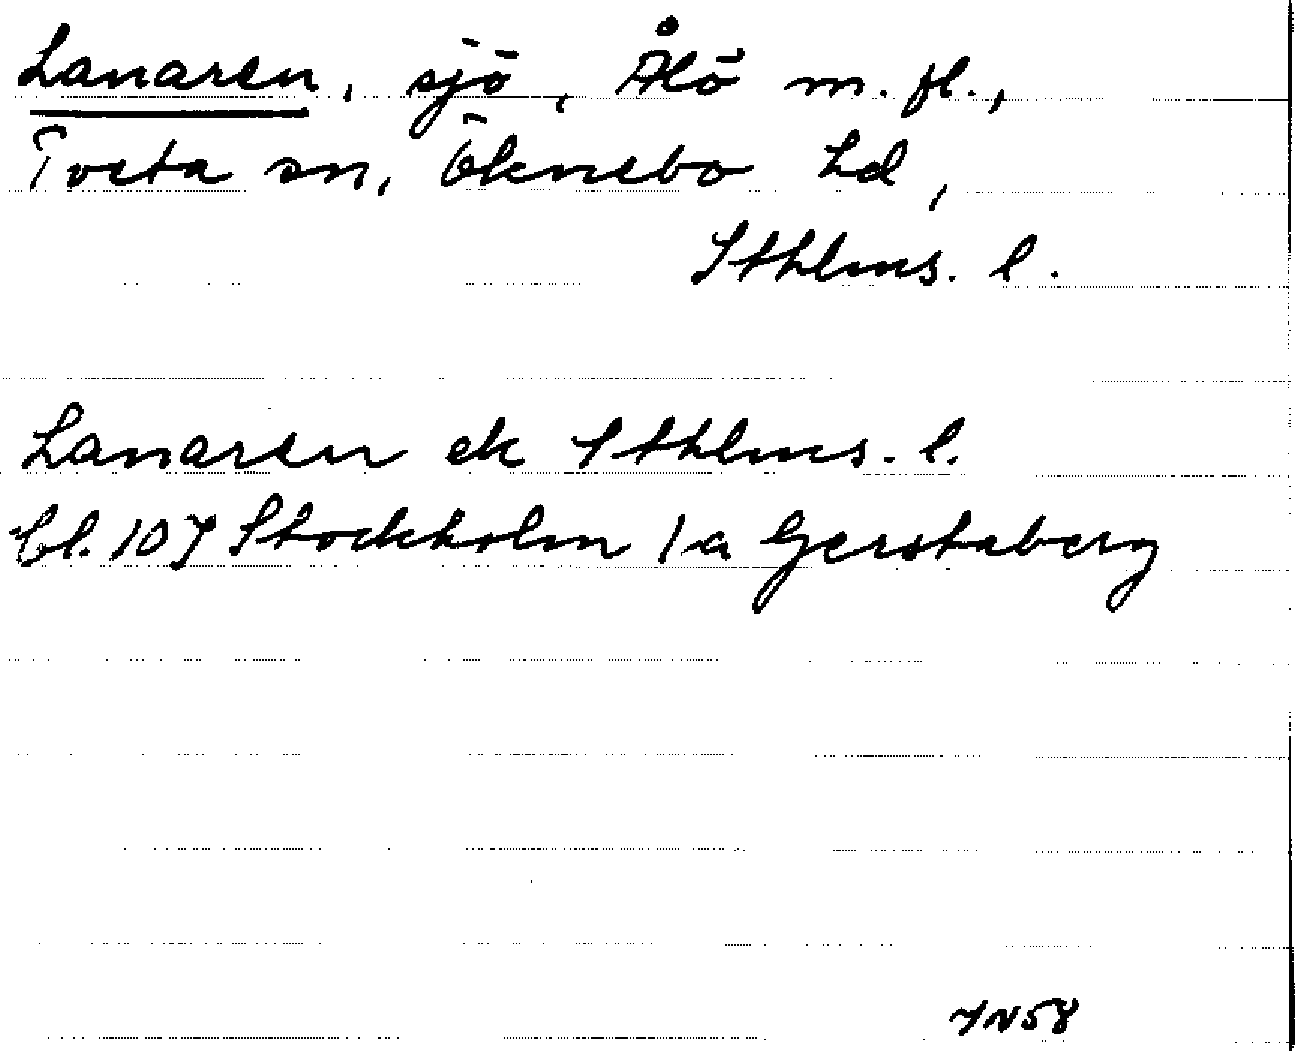 Lanaren, sjö, Ålö m. fl.,
Tveta sn, Öknebo hd,
Sthlms. l.
Lanaren ek Sthlms. l.
bl. 107 Stockholm 1a Gerstaberg